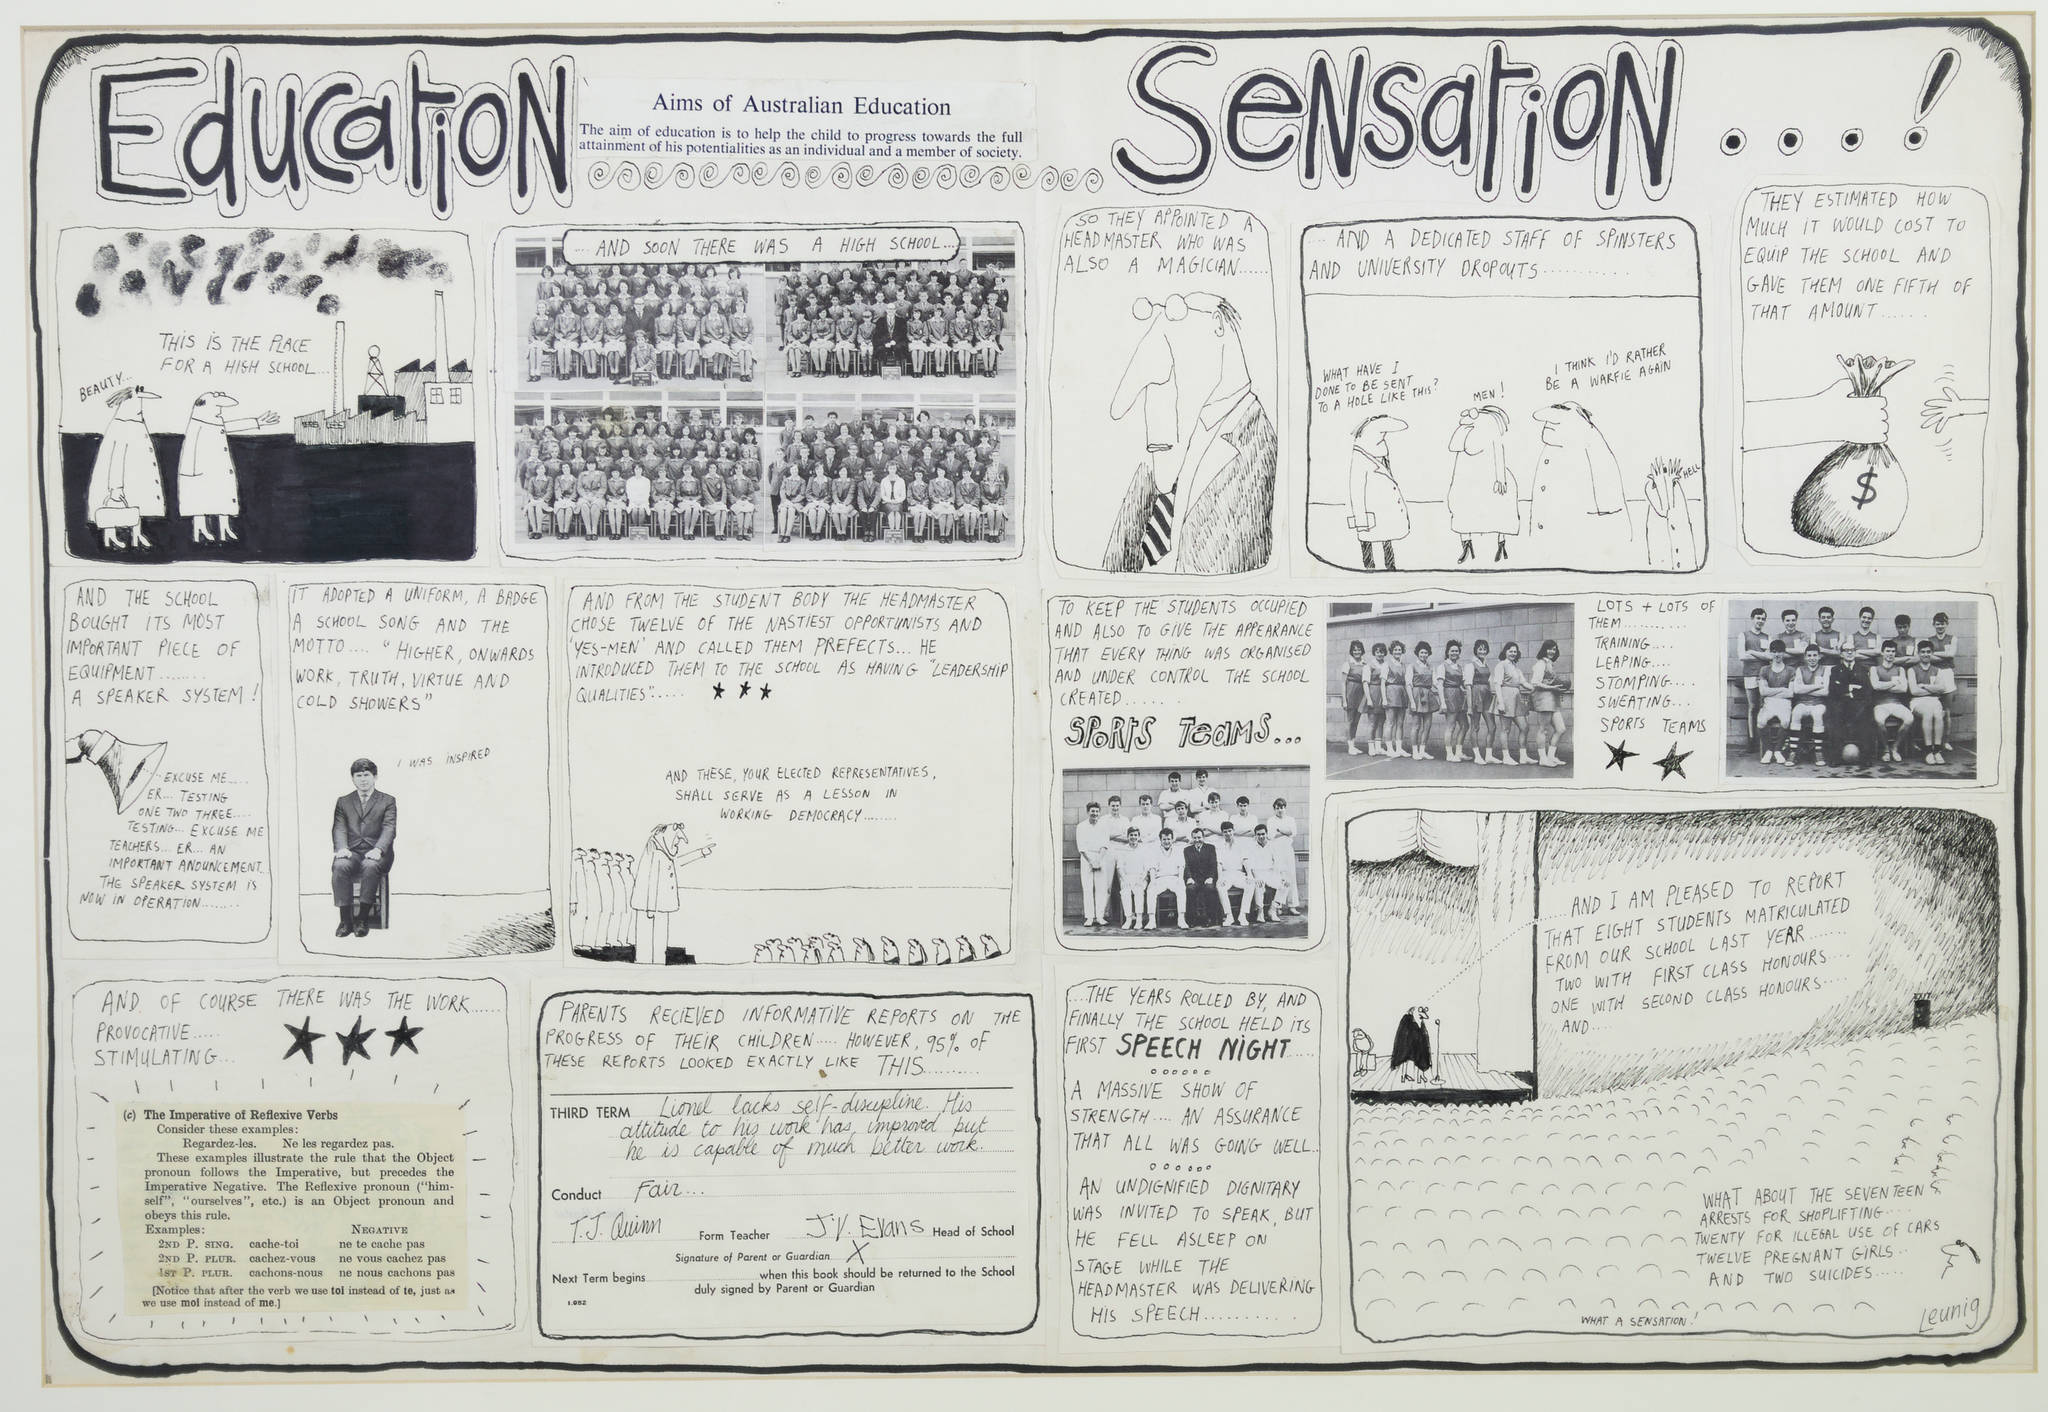 Education
Aims of Australian Education
The aim of education is to help the child to progress towards the full
attainment of his potentialities as an individual and a member of society.
Sensation....!
THIS IS THE PLACE
FOR A HIGH SCHOOL...
BEAUTY...
....AND SOON THERE WAS A HIGH SCHOOL....
SO THEY APPOINTED A
HEADMASTER WHO WAS
ALSO A MAGICIAN......
.... AND A DEDICATED STAFF OF SPINSTERS
AND UNIVERSITY DROPOUTS............
WHAT HAVE I
DONE TO BE SENT
TO A HOLE LIKE THIS?
MEN!
I THINK I'D RATHER
BE A WARFIE AGAIN
HELL
THEY ESTIMATED HOW
MUCH IT WOULD COST TO
EQUIP THE SCHOOL AND
GAVE THEM ONE FIFTH OF
THAT AMOUNT......
$
AND THE SCHOOL
BOUGHT ITS MOST
IMPORTANT PIECE OF
EQUIPMENT........
A SPEAKER SYSTEM!
EXCUSE ME....
ER... TESTING
ONE TWO THREE....
TESTING... EXCUSE ME
TEACHERS... ER... AN
IMPORTANT ANOUNCEMENT..
THE SPEAKER SYSTEM IS
NOW IN OPERATION........
IT ADOPTED A UNIFORM, A BADGE
A SCHOOL SONG AND THE
MOTTO.... "HIGHER, ONWARDS
WORK, TRUTH, VIRTUE AND
COLD SHOWERS"
I WAS INSPIRED
AND FROM THE STUDENT BODY THE HEADMASTER
CHOSE TWELVE OF THE NASTIEST OPPORTUNISTS AND
'YES-MEN' AND CALLED THEM PREFECTS... HE
INTRODUCED THEM TO THE SCHOOL AS HAVING "LEADERSHIP
QUALITIES".....
AND THESE, YOUR ELECTED REPRESENTATIVES,
SHALL SERVE AS A LESSON IN
WORKING DEMOCRACY........
TO KEEP THE STUDENTS OCCUPIED
AND ALSO TO GIVE THE APPEARANCE
THAT EVERY THING WAS ORGANISED
AND UNDER CONTROL THE SCHOOL
CREATED.......
SPORTS TEAMS...
LOTS + LOTS OF
THEM..........
TRAINING....
LEAPING....
STOMPING....
SWEATING...
SPORTS TEAMS
AND OF COURSE THERE WAS THE WORK......
PROVOCATIVE.....
STIMULATING...
(c) The Imperative of Reflexive Verbs
Consider these examples:
Regardez-les. Ne les regardez pas.
These examples illustrate the rule that the Object
pronoun follows the Imperative, but precedes the
Imperative Negative. The Reflexive pronoun ("him-
self", "ourselves", etc.) is an Object pronoun and
obeys this rule.
Examples: NEGATIVE
2ND P. SING. cache-toi ne te cache pas
2ND P. PLUR. cachez-vous ne vous cachez pas
1ST P. PLUR. cachons-nous ne nous cachons pas
[Notice that after the verb we use toi instead of te, just as
we use moi instead of me.]
PARENTS RECIEVED INFORMATIVE REPORTS ON THE
PROGRESS OF THEIR CHILDREN..... HOWEVER, 95% OF
THESE REPORTS LOOKED EXACTLY LIKE THIS..........
THIRD TERM Lionel lacks self-discipline. His
attitude to his work has improved but
he is capable of much better work.
Conduct Fair...
T.J. Quinn Form Teacher J.V. Evans Head of School
Signature of Parent or Guardian X
Next Term begins when this book should be returned to the School
duly signed by Parent or Guardian
1.982
....THE YEARS ROLLED BY, AND
FINALLY THE SCHOOL HELD ITS
FIRST SPEECH NIGHT.....
A MASSIVE SHOW OF
STRENGTH.... AN ASSURANCE
THAT ALL WAS GOING WELL..
AN UNDIGNIFIED DIGNITARY
WAS INVITED TO SPEAK, BUT
HE FELL ASLEEP ON
STAGE WHILE THE
HEADMASTER WAS DELIVERING
HIS SPEECH..........
......AND I AM PLEASED TO REPORT
THAT EIGHT STUDENTS MATRICULATED
FROM OUR SCHOOL LAST YEAR.......
TWO WITH FIRST CLASS HONOURS....
ONE WITH SECOND CLASS HONOURS....
AND....
WHAT ABOUT THE SEVENTEEN
ARRESTS FOR SHOPLIFTING....
TWENTY FOR ILLEGAL USE OF CARS
TWELVE PREGNANT GIRLS..
AND TWO SUICIDES.....
WHAT A SENSATION!
Leunig